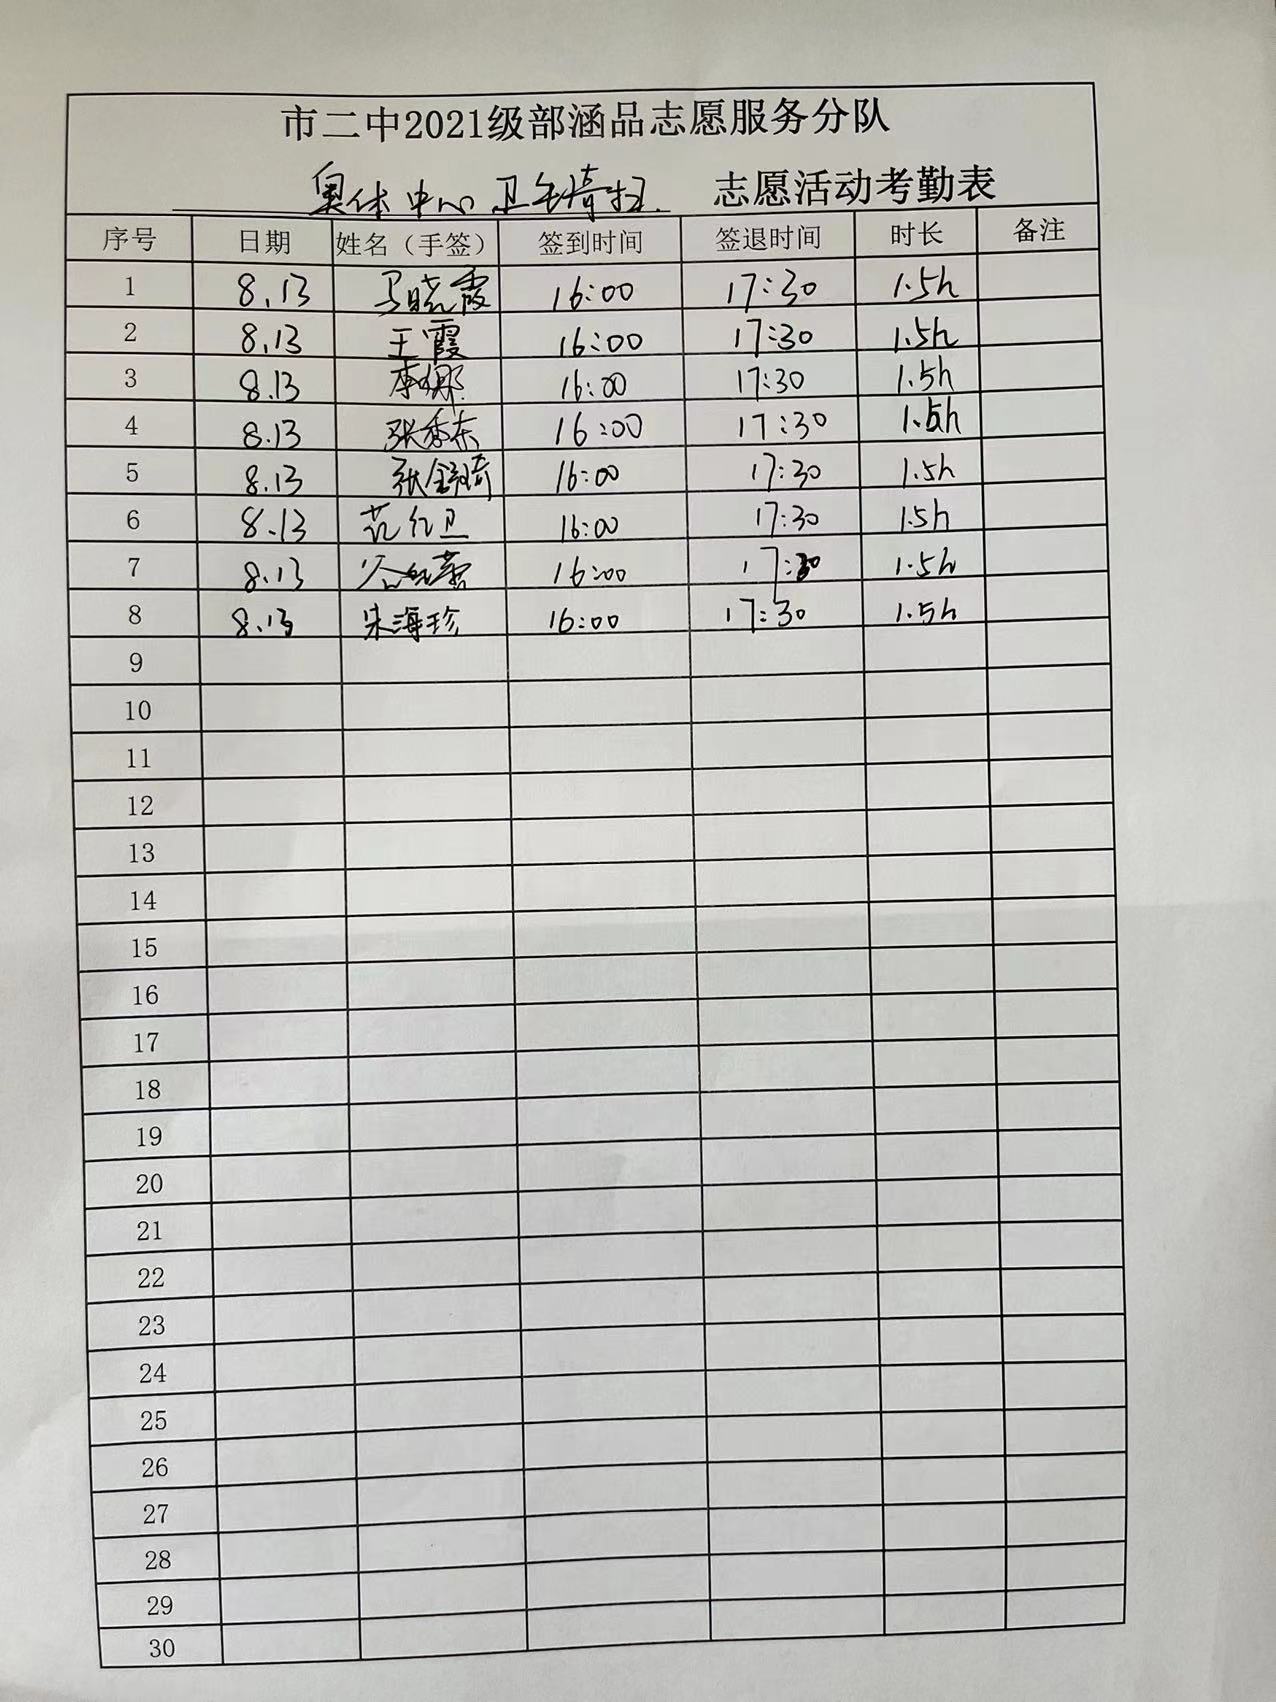 市二中2021级部涵品志愿服务分队
奥体中心卫生清扫 志愿活动考勤表
序号 日期 姓名（手签） 签到时间 签退时间 时长 备注
1 8.13 马晓霞 16:00 17:30 1.5h
2 8.13 王霞 16:00 17:30 1.5h
3 8.13 李娜 16:00 17:30 1.5h
4 8.13 张秀东 16:00 17:30 1.5h
5 8.13 张 16:00 17:30 1.5h
6 8.13 范红卫 16:00 17:30 1.5h
7 8.13 16:00 17:30 1.5h
8 8.13 朱海珍 16:00 17:30 1.5h
9
10
11
12
13
14
15
16
17
18
19
20
21
22
23
24
25
26
27
28
29
30